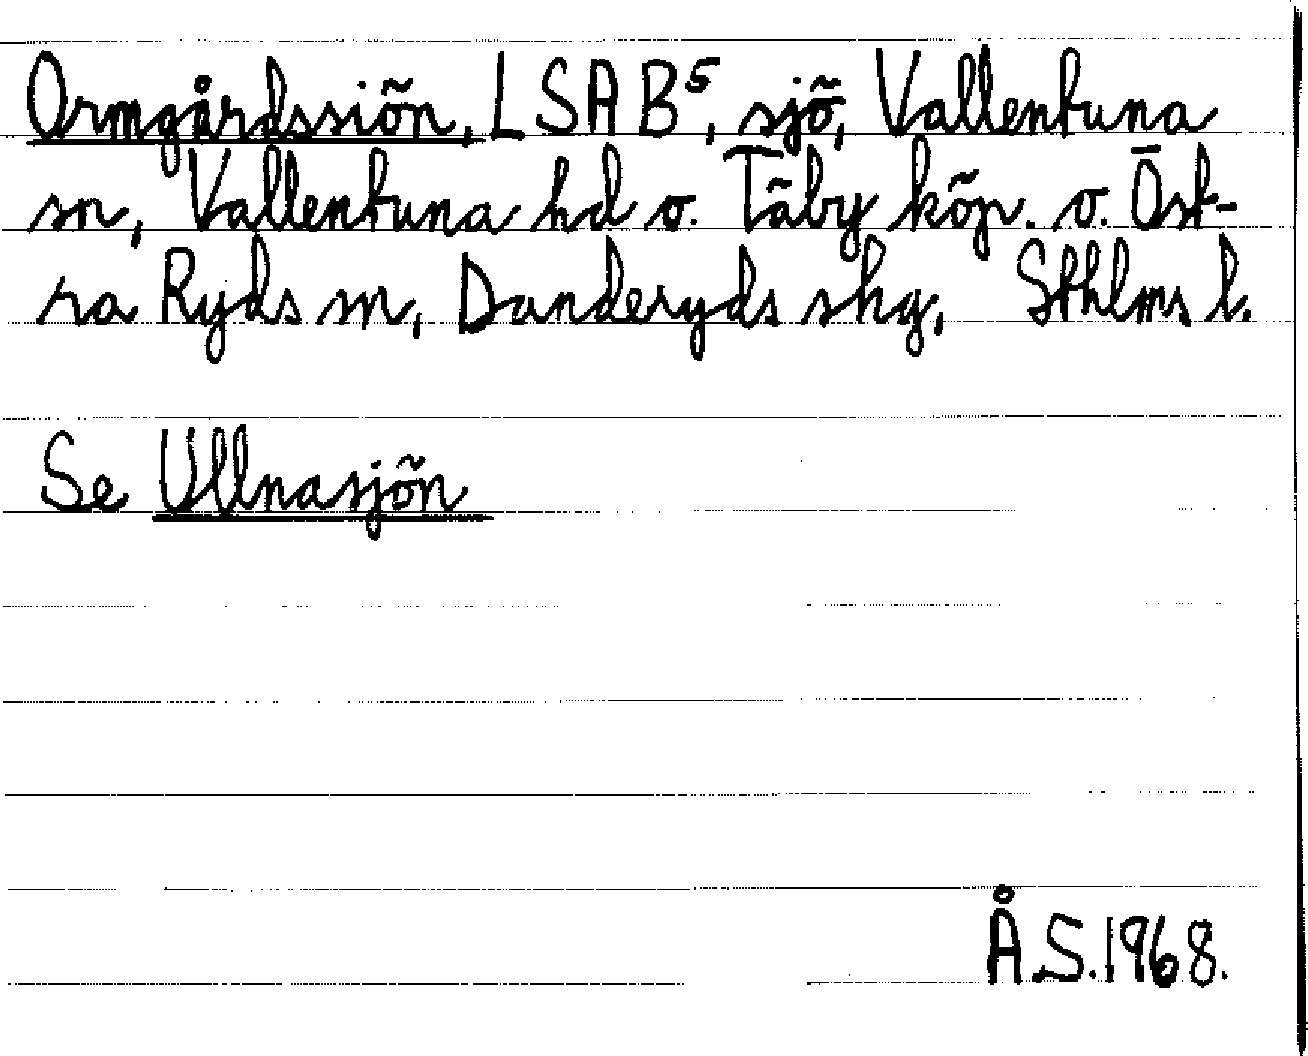 Ormgårdssiön, LSA B⁵, sjö, Vallentuna
sn, Vallentuna hd o. Täby köp. o. Öst-
ra Ryds sn, Danderyds skg, Sthlms l.
Se Ullnasjön
Å.S. 1968.